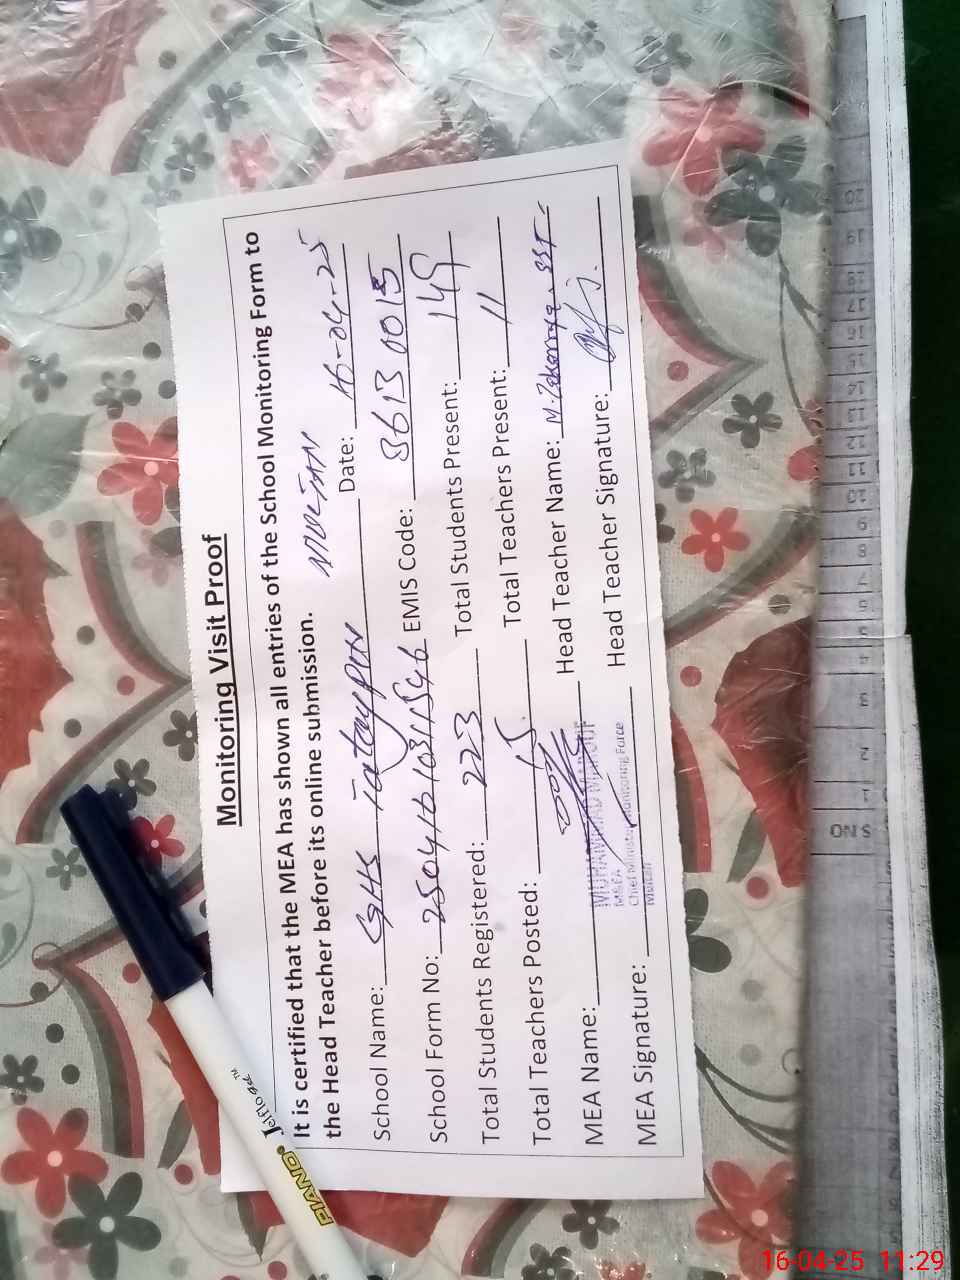 Monitoring Visit Proof
It is certified that the MEA has shown all entries of the School Monitoring Form to
the Head Teacher before its online submission.
School Name: GHS MULTAN Date: 16-04-25
School Form No: EMIS Code: 36130015
Total Students Registered: 223 Total Students Present: 149
Total Teachers Posted: 15 Total Teachers Present: 11
MEA Name: Head Teacher Name: M. Zakariya SST
MUHAMMAD MAROUF
M&EA
Chief Minister Monitoring Force
Multan
MEA Signature: Head Teacher Signature:
PIANO Jelflo Gel™
S NO 1 2 3 4 5 6 7 8 9 10 11 12 13 14 15 16 17 18 19 20
16-04-25 11:29